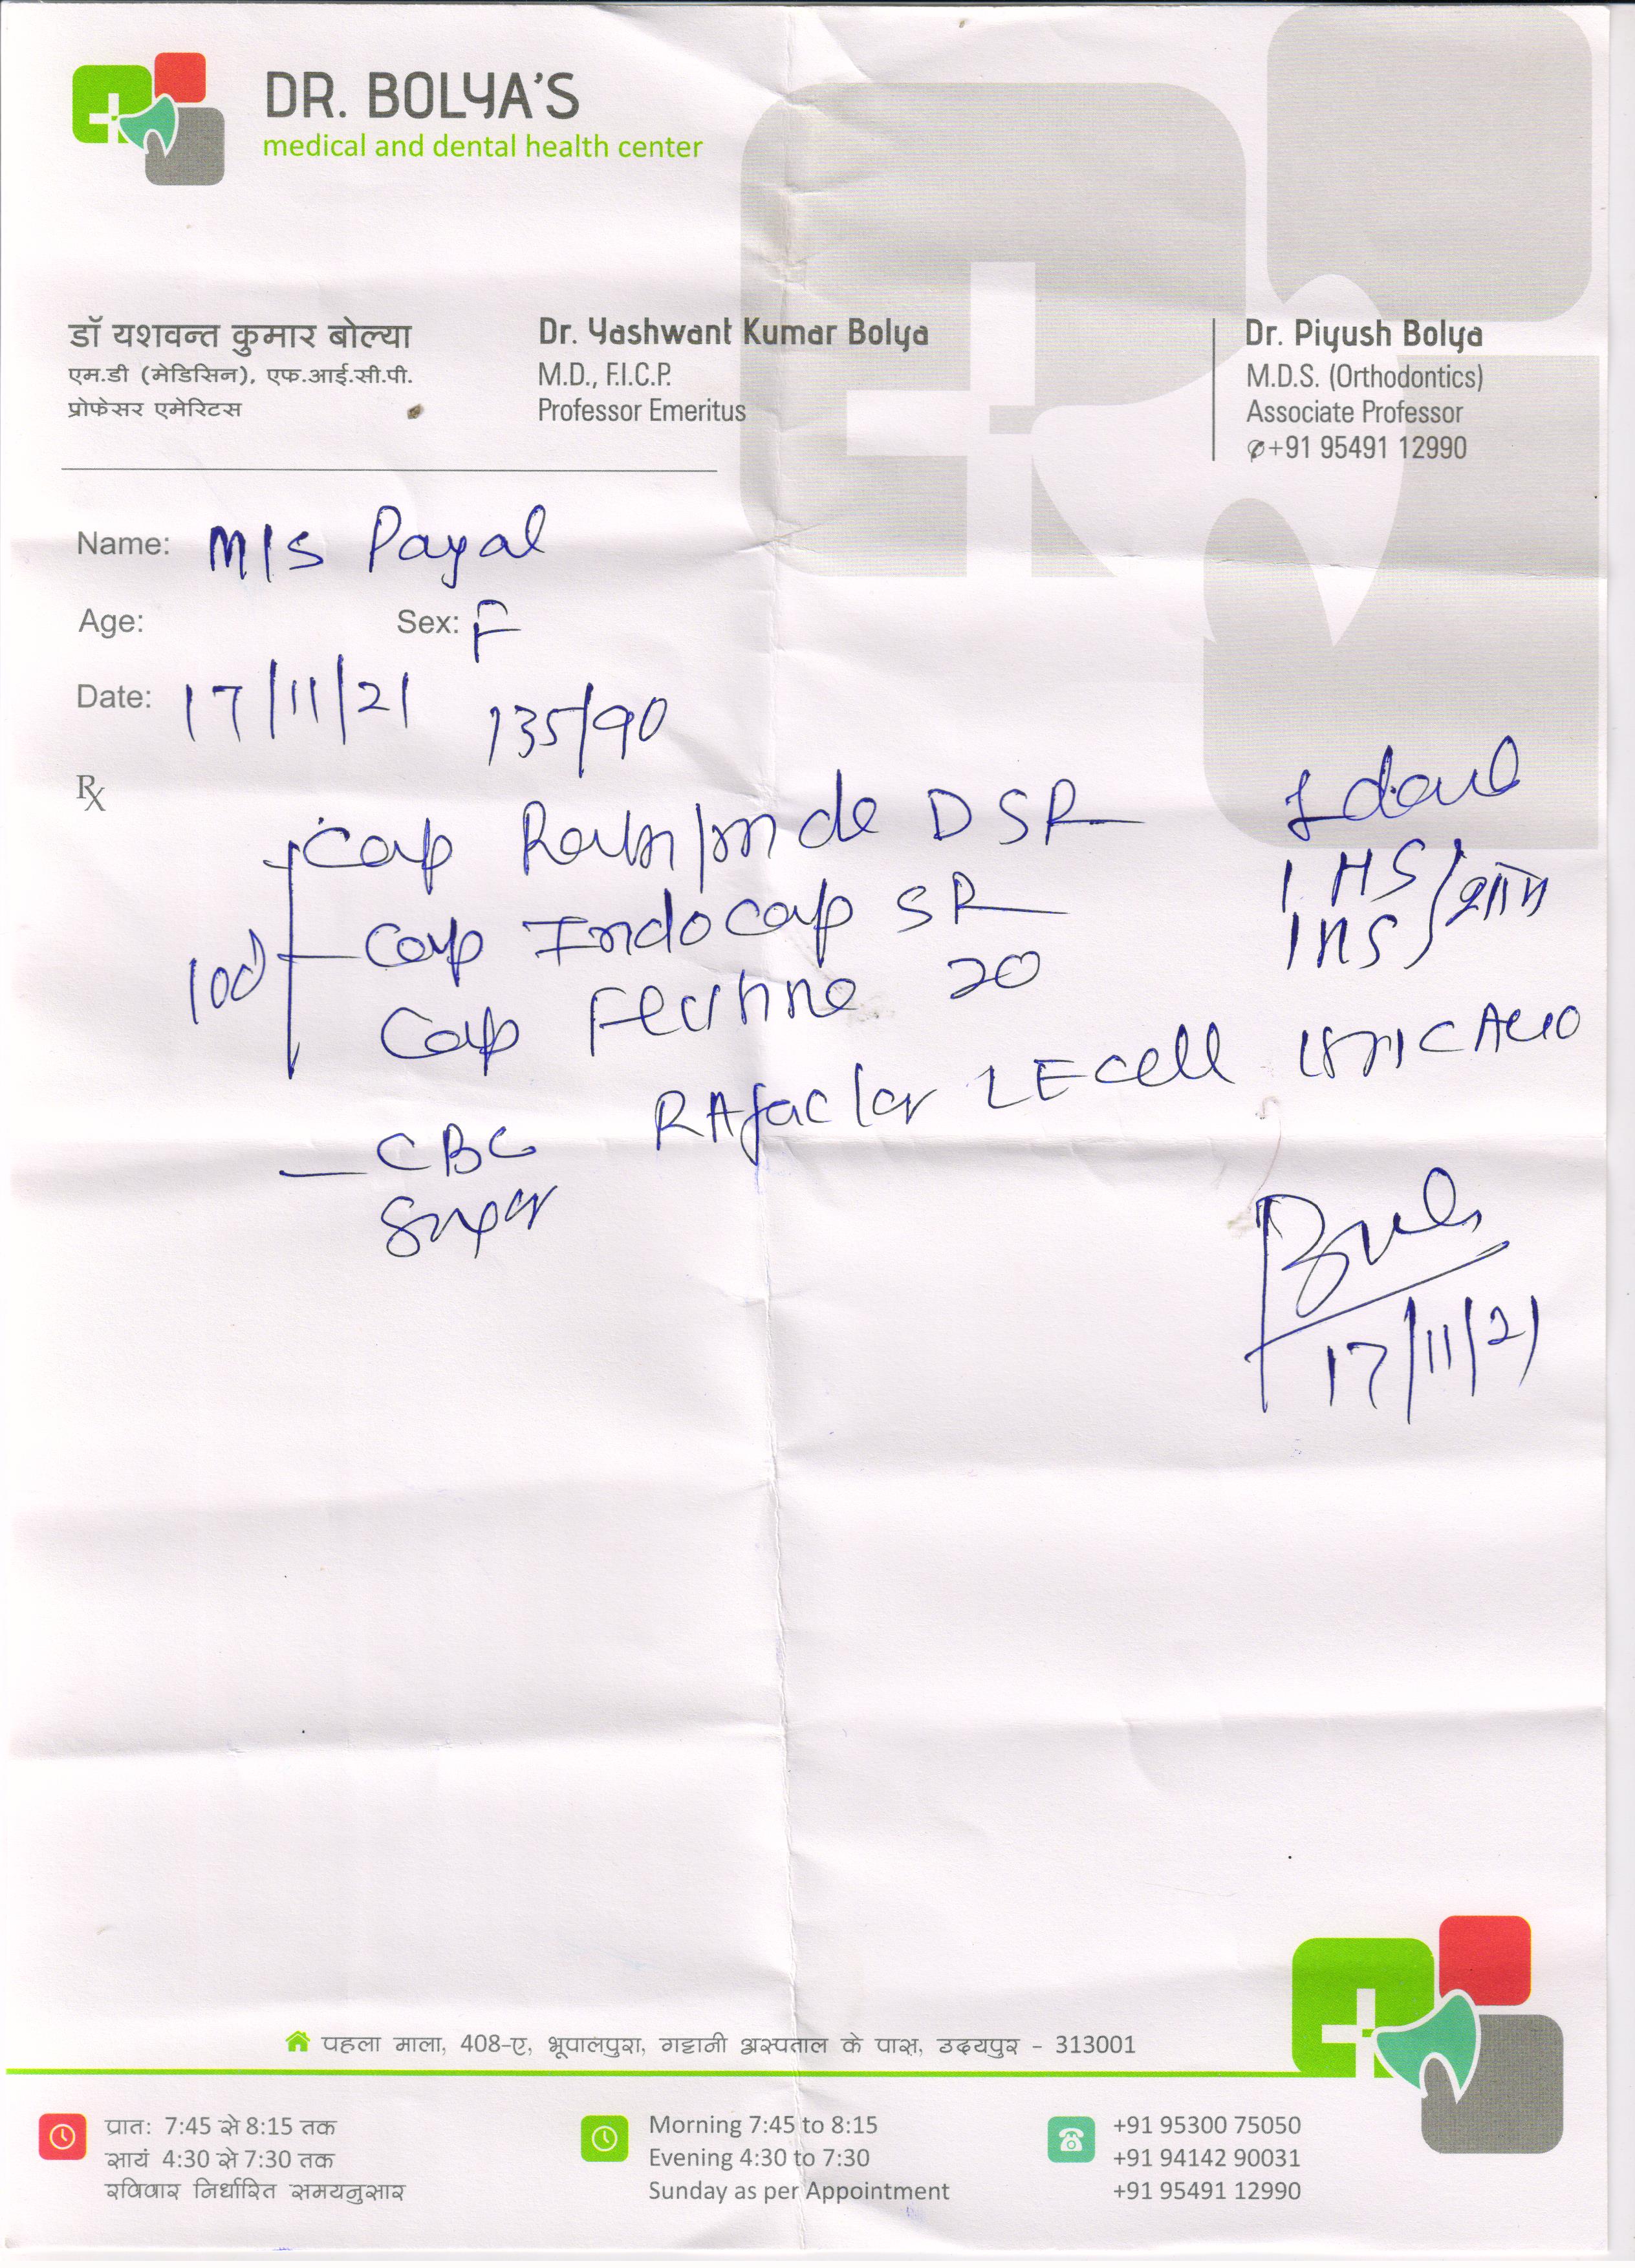 DR. BOLYA'S
medical and dental health center
डॉ यशवन्त कुमार बोल्या
एम.डी (मेडिसिन), एफ.आई.सी.पी.
प्रोफेसर एमेरिटस
Dr. Yashwant Kumar Bolya
M.D., F.I.C.P.
Professor Emeritus
Dr. Piyush Bolya
M.D.S. (Orthodontics)
Associate Professor
+91 95491 12990
Name: M/S Payal
Age: Sex: F
Date: 17/11/21 135/90
Rx
Cap DSR
Cap Indocap SR 1 HS
10d
Cap 20
CBC RA factor LE cell
17/11/21
पहला माला, 408-ए, भूपालपुरा, गट्टानी अस्पताल के पास, उदयपुर - 313001
प्रातः 7:45 से 8:15 तक
सायं 4:30 से 7:30 तक
रविवार निर्धारित समयनुसार
Morning 7:45 to 8:15
Evening 4:30 to 7:30
Sunday as per Appointment
+91 95300 75050
+91 94142 90031
+91 95491 12990